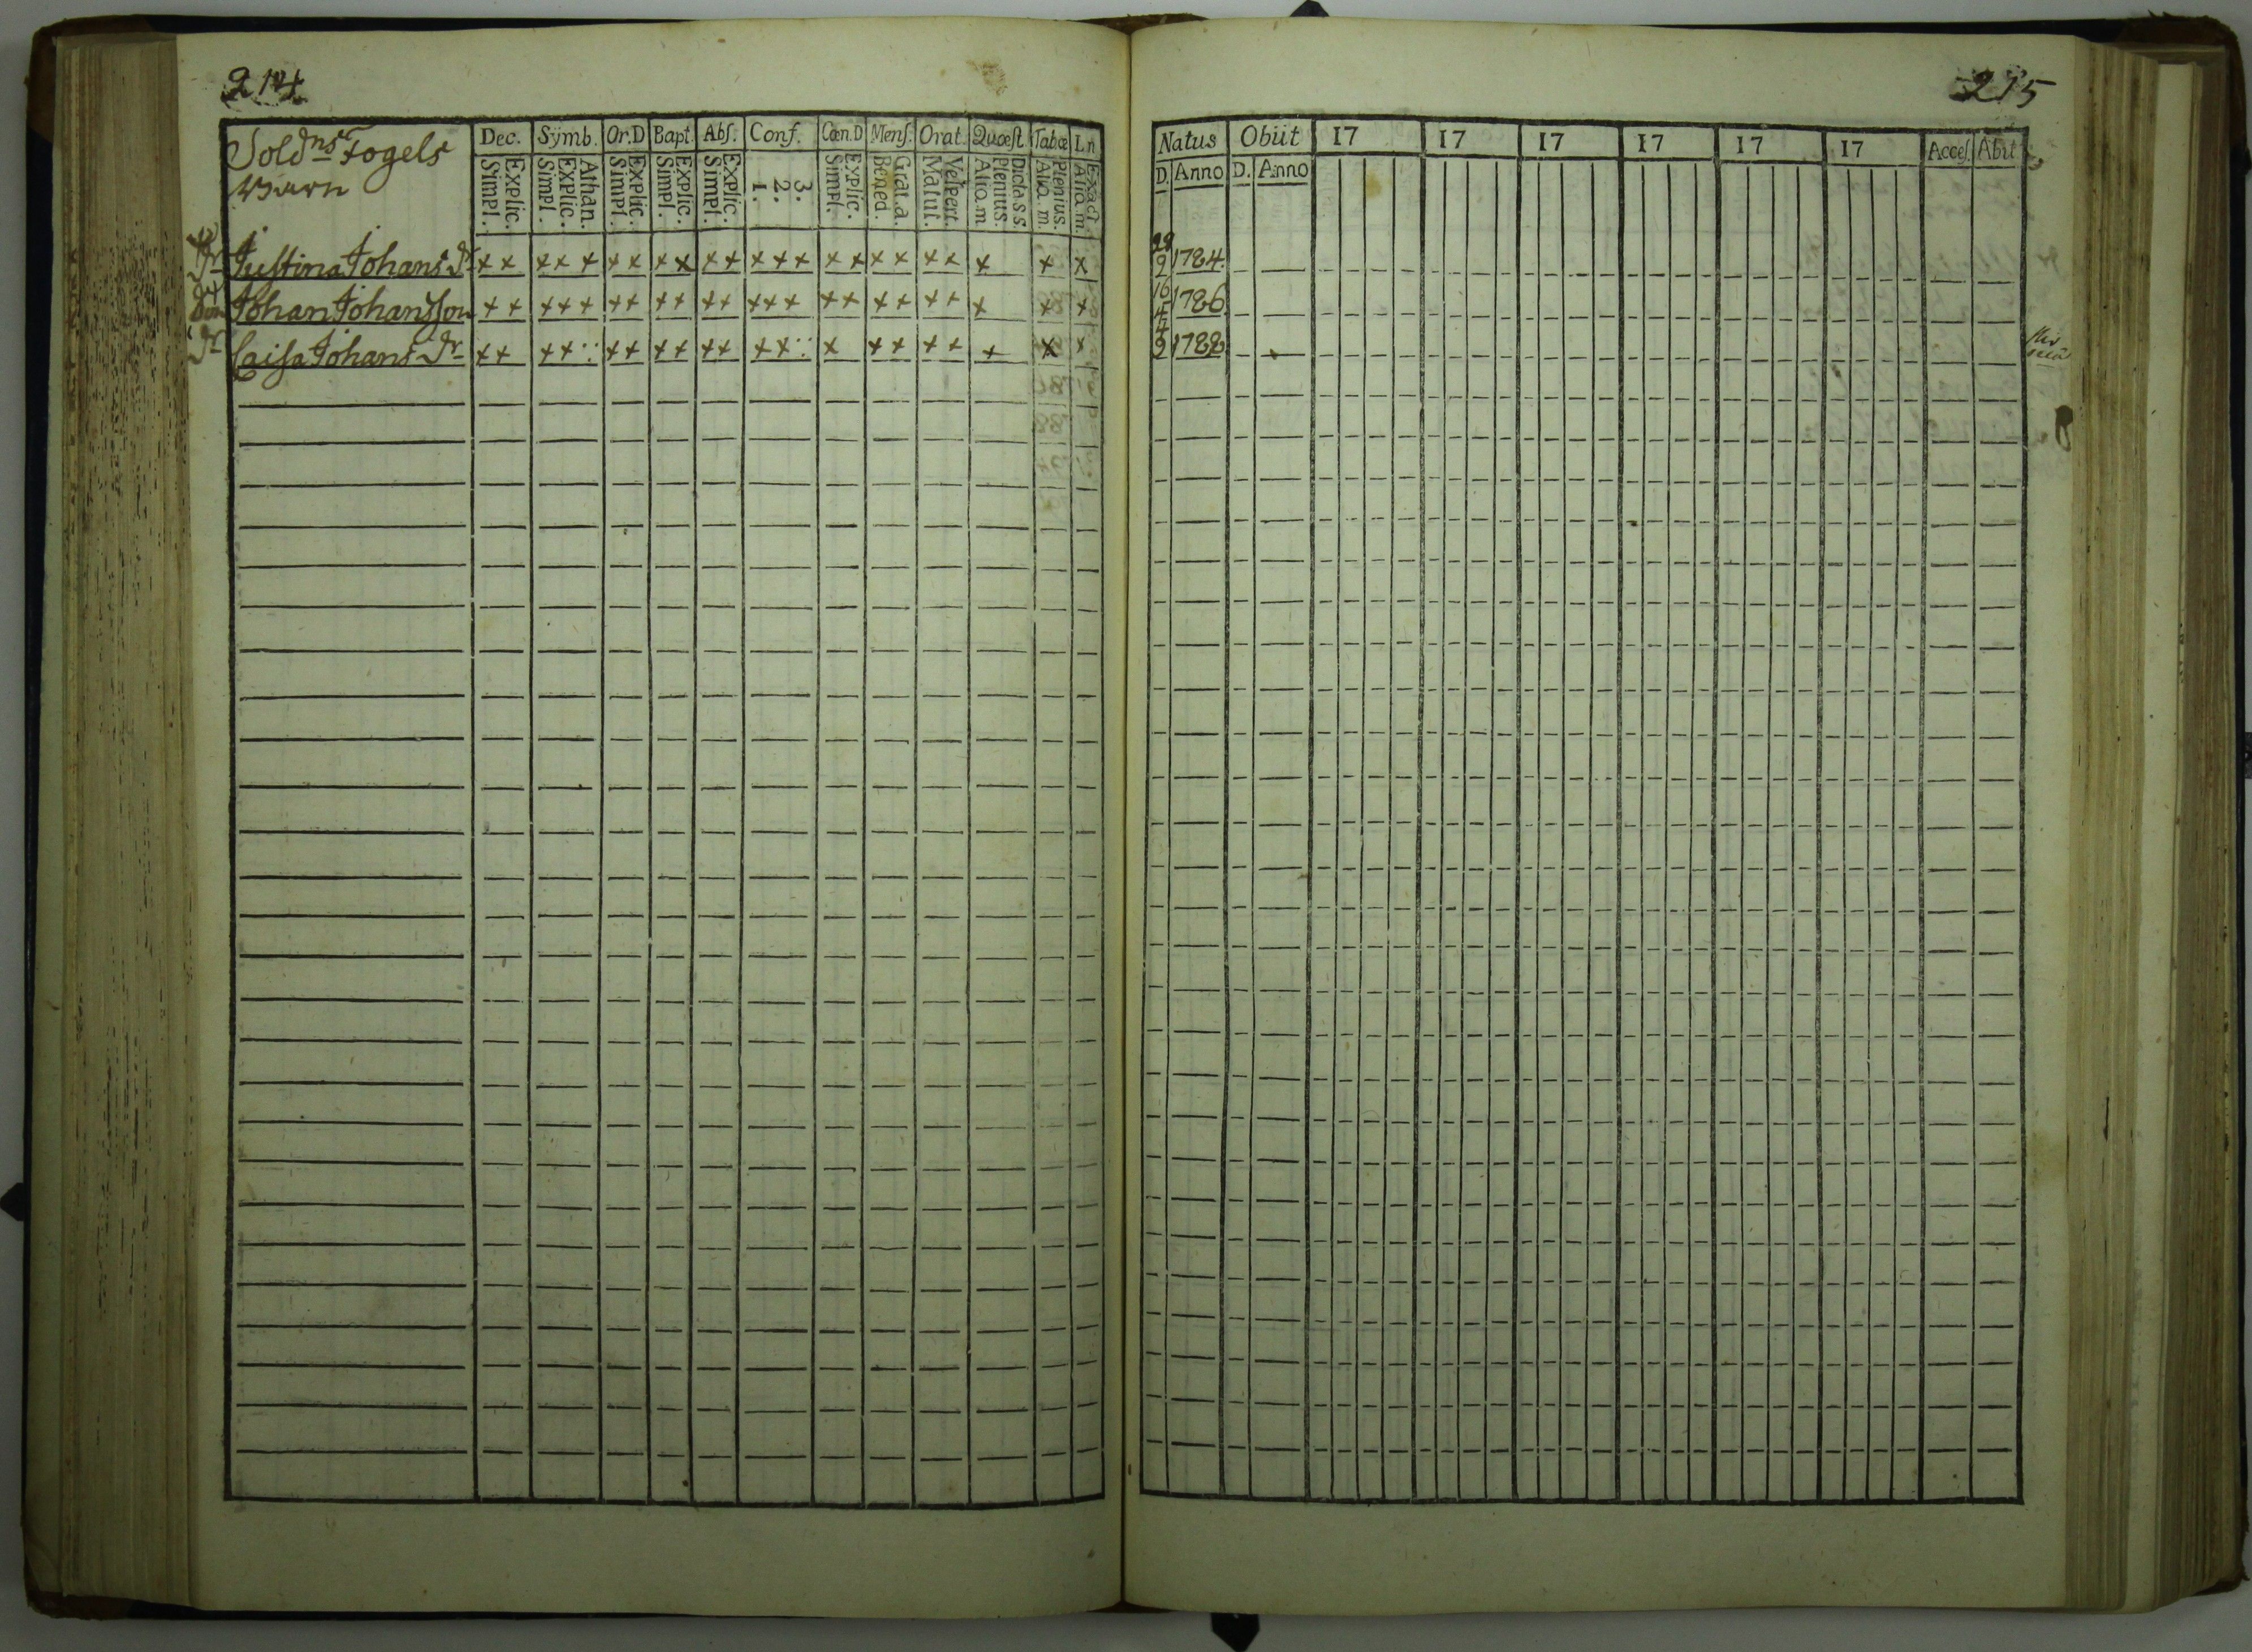 214
Soldns Fogels
Barn
Dec. Symb. Or.D Bapt. Abſ. Conf. Cœn.D Menſ. Orat. Quœſt Tabœ L.n
Explic. Simpl. Athan. Explic. Simpl. Explic. Simpl. Explic. Simpl. Explic. Simpl. 3. 2. 1. Explic. Simpl. Grat.a. Bened. Veſpert. Matut. Dicta.s.s. Plenius. Aliq.m. Plenius. Aliq.m. Exact. Aliq.m.
Dr Justina Johans Dr ×× ××× ×× ×× ×× ××× ×× ×× ×× × × ×
Johan Johansson ×× ××× ×× ×× ×× ××× ×× ×× ×× × × ×
Dr Caisa Johans Dr ×× ××∵ ×× ×× ×× ××∵ × ×× ×× × × ×
215
Natus Obiit 17 17 17 17 17 17 Acceſ. Abit
D. Anno D. Anno
29/2 1784.
16/4 1786.
4/2 1788